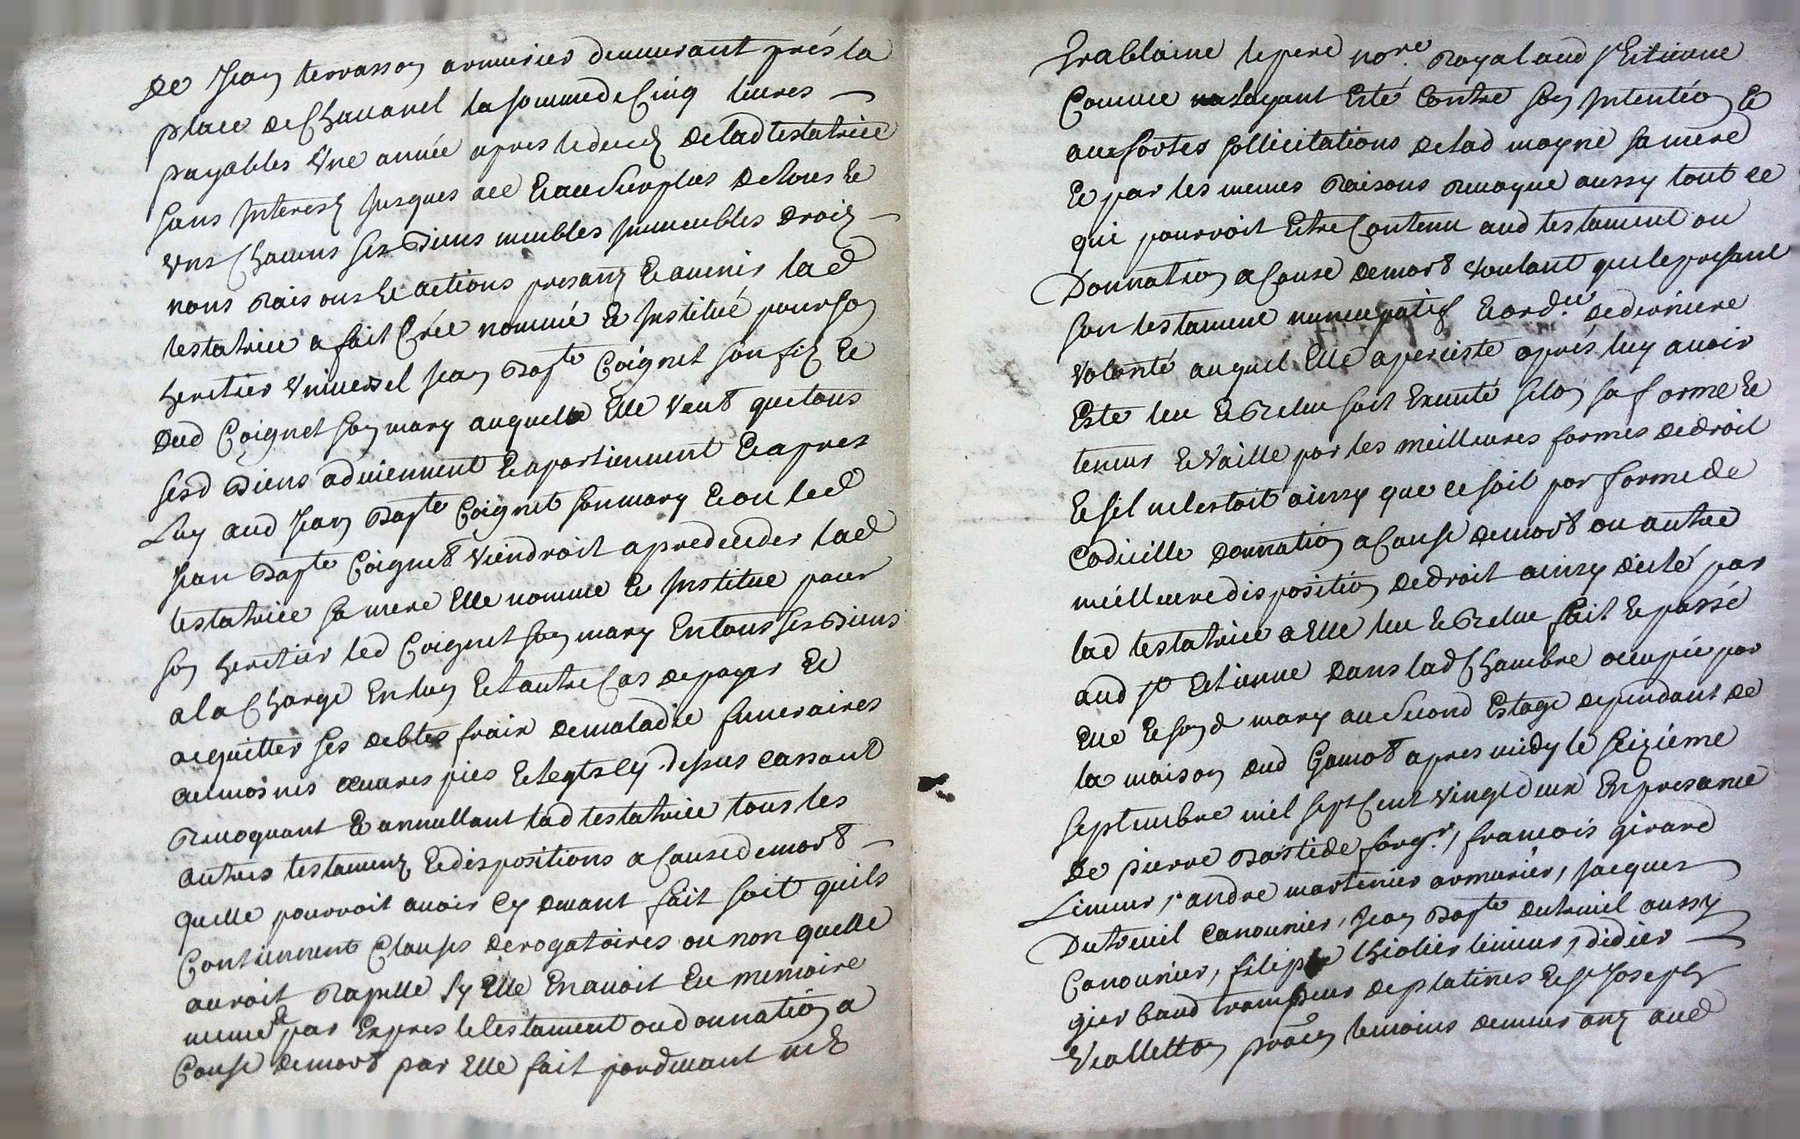 De Jean terrasson armurier demeurant prés la
place de Chavanel la somme de Cinq livres
payables Une année apres le deceds de lad testatrice
sans Interest Jusques alle Et au surplus de tous Et
Uns Chacuns ses Biens meubles Immeubles Droits
noms Raisons Et actions presans Et avenir lad
testatrice a fait Crée nommé Et Institué pour son
heritier Universel Jean Bapte Coignet son fils Et
dud Coignet son mary auquelle Elle veut que tous
sesd Biens adviennent Et apartiennent Et apres
Luy aud Jean Bapte Coignet son mary Et ou led
Jean Bapte Coignet viendroit a prededer lad
testatrice sa mere Elle nomme Et Institue pour
son heritier led Coignet son mary En tous ses Biens
a la Charge En lun Et lautre Cas de payer Et
acquitter ses debtes fraix de maladie funeraires
aumosnes œuvres pies Et legts cy dessus cassant
Revoquant Et annullant lad testatrice tous les
autres testaments Et dispositions a Cause de mort
quelle pourroit avoir Cy devant fait soit quils
Contiennent Clauses derogatoires ou non quelle
auroit Rapellé sy Elle En avoit Eu memoire
meme par Expres le testament ou donnation a
Cause de mort par Elle fait pardevant me
trablaine le pere nore Royal aud St Etienne
Comme layant Eté Contre son Intention Et
aux fortes sollicitations de lad moyne sa mere
Et par les memes Raisons Revoque aussy tout ce
qui pourroit Etre Contenu aud testament ou
Donnation a Cause de mort voulant que le presant
son testament nuncupatif Et ordre de derniere
volonté auquel Elle a perciste aprés luy avoir
Esté leu Et Releu soit Executé selon sa forme Et
teneur Et Vaille par les meilleures formes de droit
Et sil ne lestoit ainsy que ce soit par forme de
Codicille Donnation a Cause de mort ou autre
meilleure disposition de droit ainsy dicté par
lad testatrice a Elle leu Et Releu fait Et passé
aud St Etienne Dans lad Chambre occupée par
Elle Et sond mary au second Estage dependant de
la maison dud Gamot apres midy le seizieme
septembre mil sept Cent vingt deux En presance
De pierre Bastide forgr, francois girard
Limeur, andre martenier armurier, Jacques
Dutreuil canonnier, Jean Bapte dutreuil aussy
Canonnier, filippe thiolier limeur, didier
gierbaud trampeur de platines Et St Joseph
Vialletton pratn temoins demeurans aud